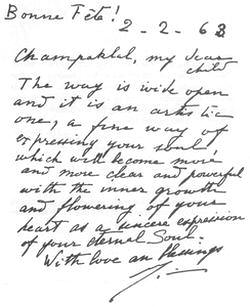 Bonne Fête!
2-2-63
Champaklal, my dear
child
The way is wide open
and it is an artistic
one, a fine way of
expressing your soul,
which will become more
and more clear and powerful
with the inner growth
and flowering of your
heart as a sincere expression
of your eternal Soul.
With love an blessings